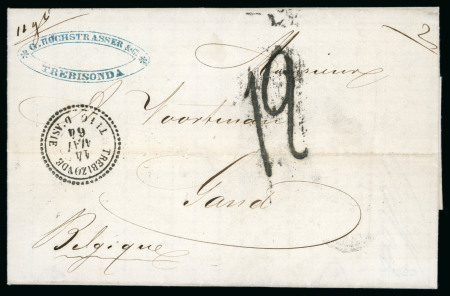 G. HOCHSTRASSER & C.
TREBISONDA
2
Monsieur
12
J. Voortman
TREBIZONDE
14
MAI
64
TURQ. D'ASIE
Gand
Belgique